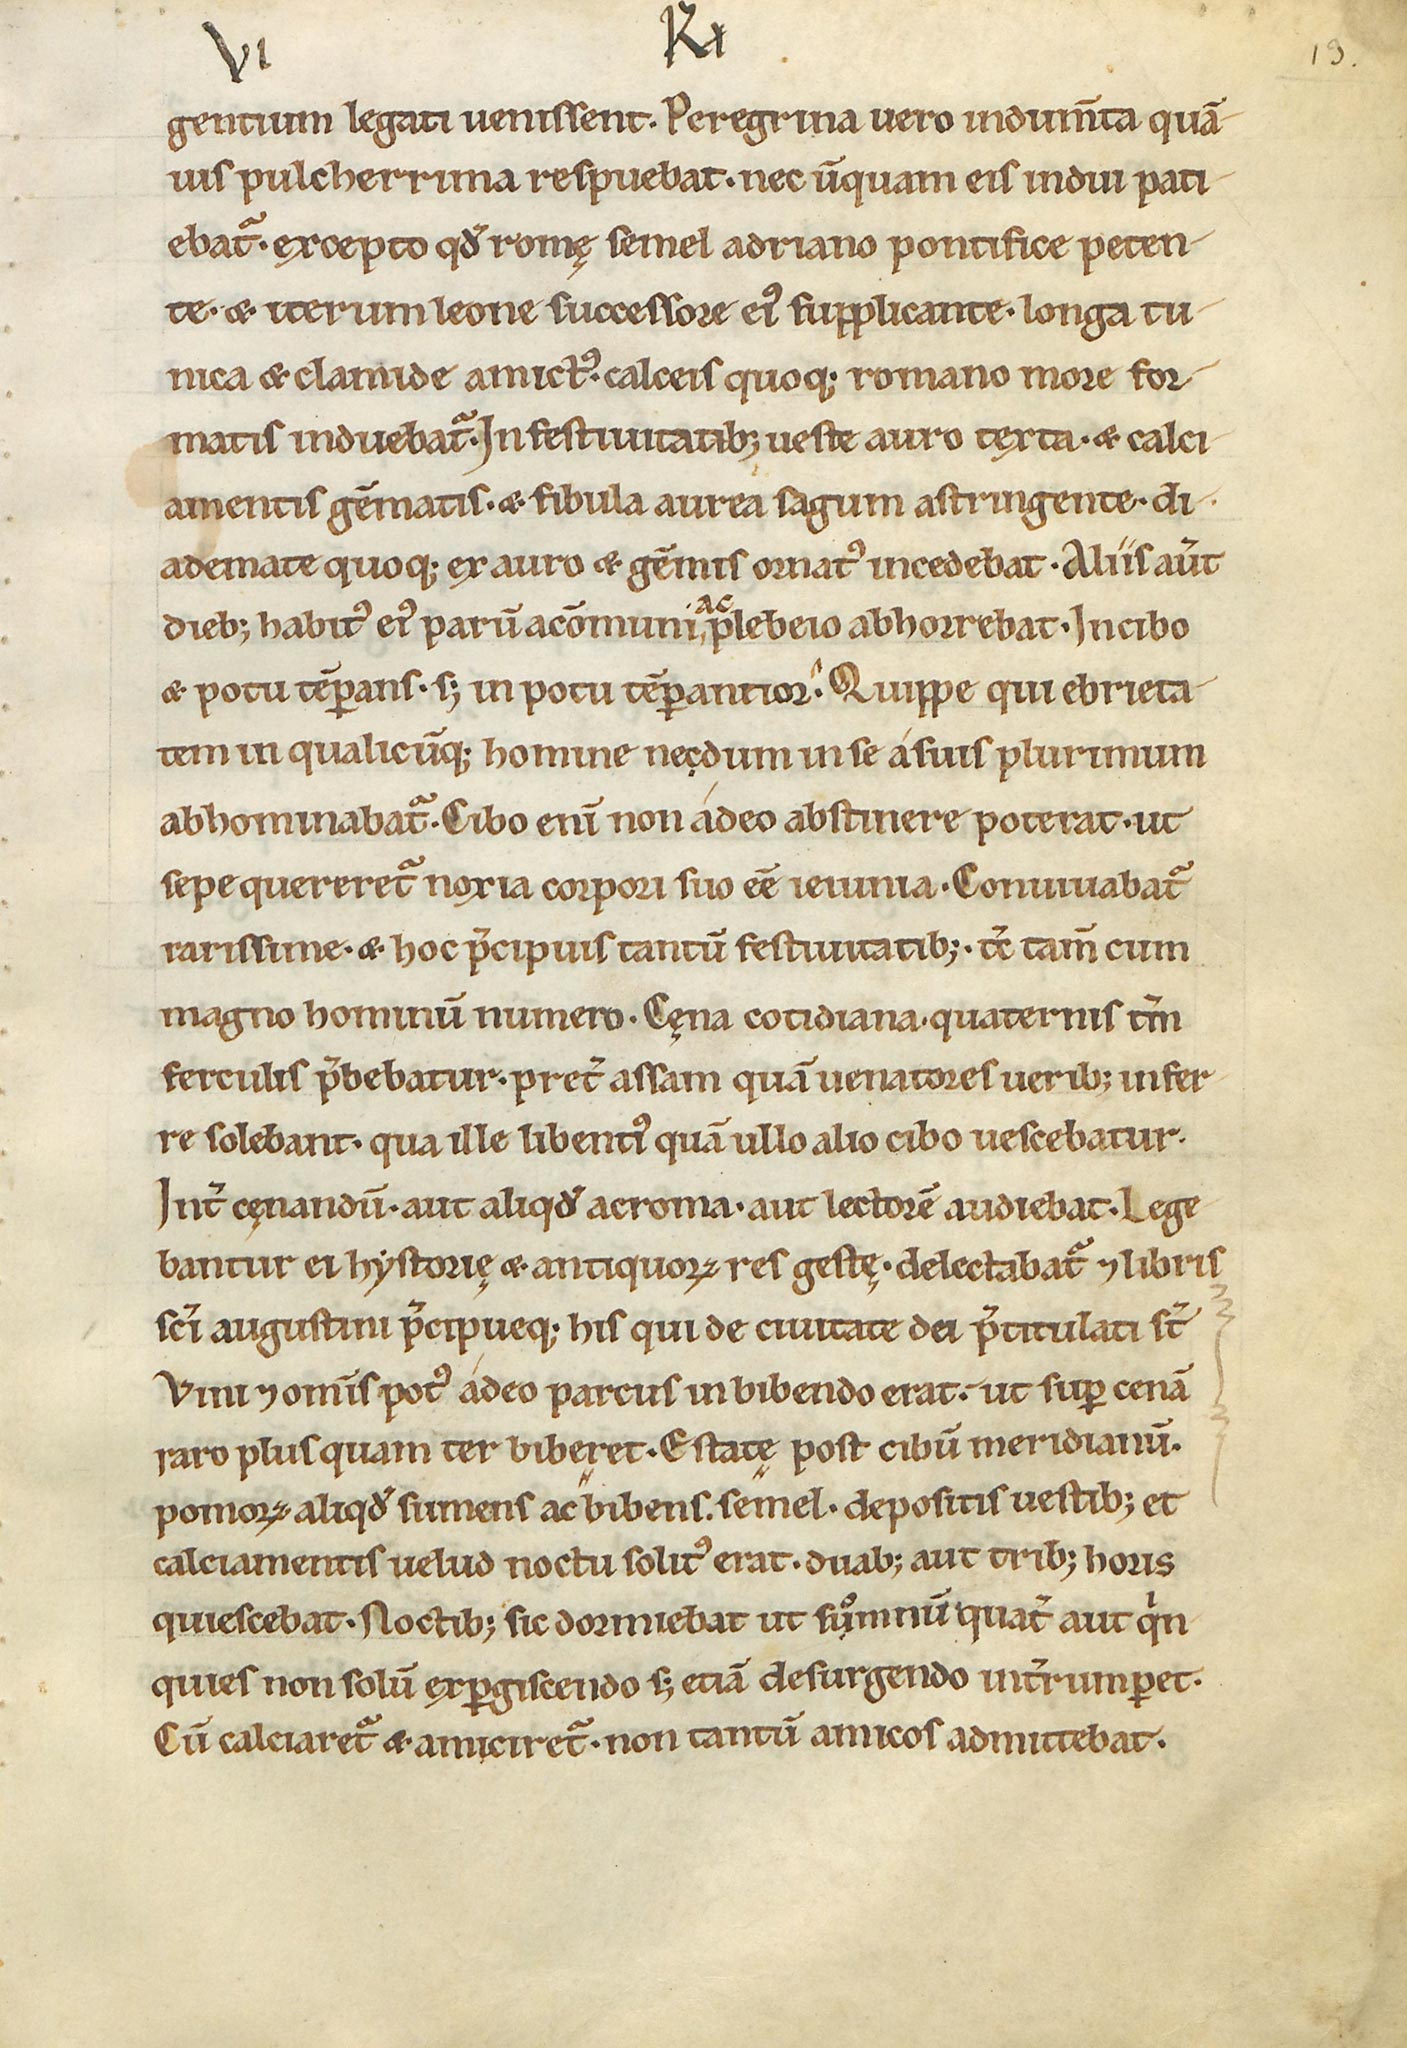 VI
Kx
19.
gentium legati uenissent. Peregrina uero indum̄ta quā
uis pulcherrima respuebat. nec ūquam eis indui pati
ebat᷑. excepto qđ romę semel adriano pontifice peten
te. & iterum leone successore eiꝰ supplicante. longa tu
nica & clamide amictꝰ. calceis quoq; romano more for
matis induebat᷑. In festiuitatib; ueste auro tęxta. & calci
amentis gēmatis. & fibula aurea sagum astringente. di
ademate quoq; ex auro & gēmis ornatꝰ incedebat. Aliis aūt
dieb; habitꝰ eiꝰ parū acōmuni ac plebeio abhorrebat. In cibo
& potu tēꝑans. s; in potu tēꝑantior. Quippe qui ebrieta
tem in qualicūq; homine nęcdum in se ásuis plurimum
abhominabat᷑. Cibo enī non ádeo abstinere poterat. ut
sepe quereret᷑ noxia corpori suo eē ieiunia. Conuiuabat᷑
rarissime. & hoc p̄cipuis tantū festiuitatib;. tc̄ tam̄ cum
magno hominū numero. Cęna cotidiana. quaternis tm̄
ferculis p̄bebatur. pret᷑ assam quā uenatores uerib; infer
re solebant. qua ille libentiꝰ quā ullo alio cibo uescebatur.
Int᷑ cęnandū. aut aliqđ acroma. aut lectorē audiebat. Lege
bantur ei hẏstorię & antiquoꝝ res gestę. delectabat᷑ ⁊ libris
sc̄i augustini p̄cipueq; his qui de ciuitate dei p̄titulati st̄
Vini ⁊ omīs potꝰ ádeo parcus in bibendo erat. ut suꝑ cenā
raro plus quam ter biberet. Estatę post cibū meridianū.
pomoꝝ aliqđ sumens ac bibens. semel. depositis uestib; et
calciamentis uelud noctu solitꝰ erat. duab; aut trib; horis
quiescebat. Noctib; sic dormiebat ut suͦmnū quat᷑ aut qͥn
quies non solū exꝑgiscendo s; etiā desurgendo int᷑rumꝑet.
Cū calciaret᷑ & amiciret᷑. non tantū amicos admittebat.